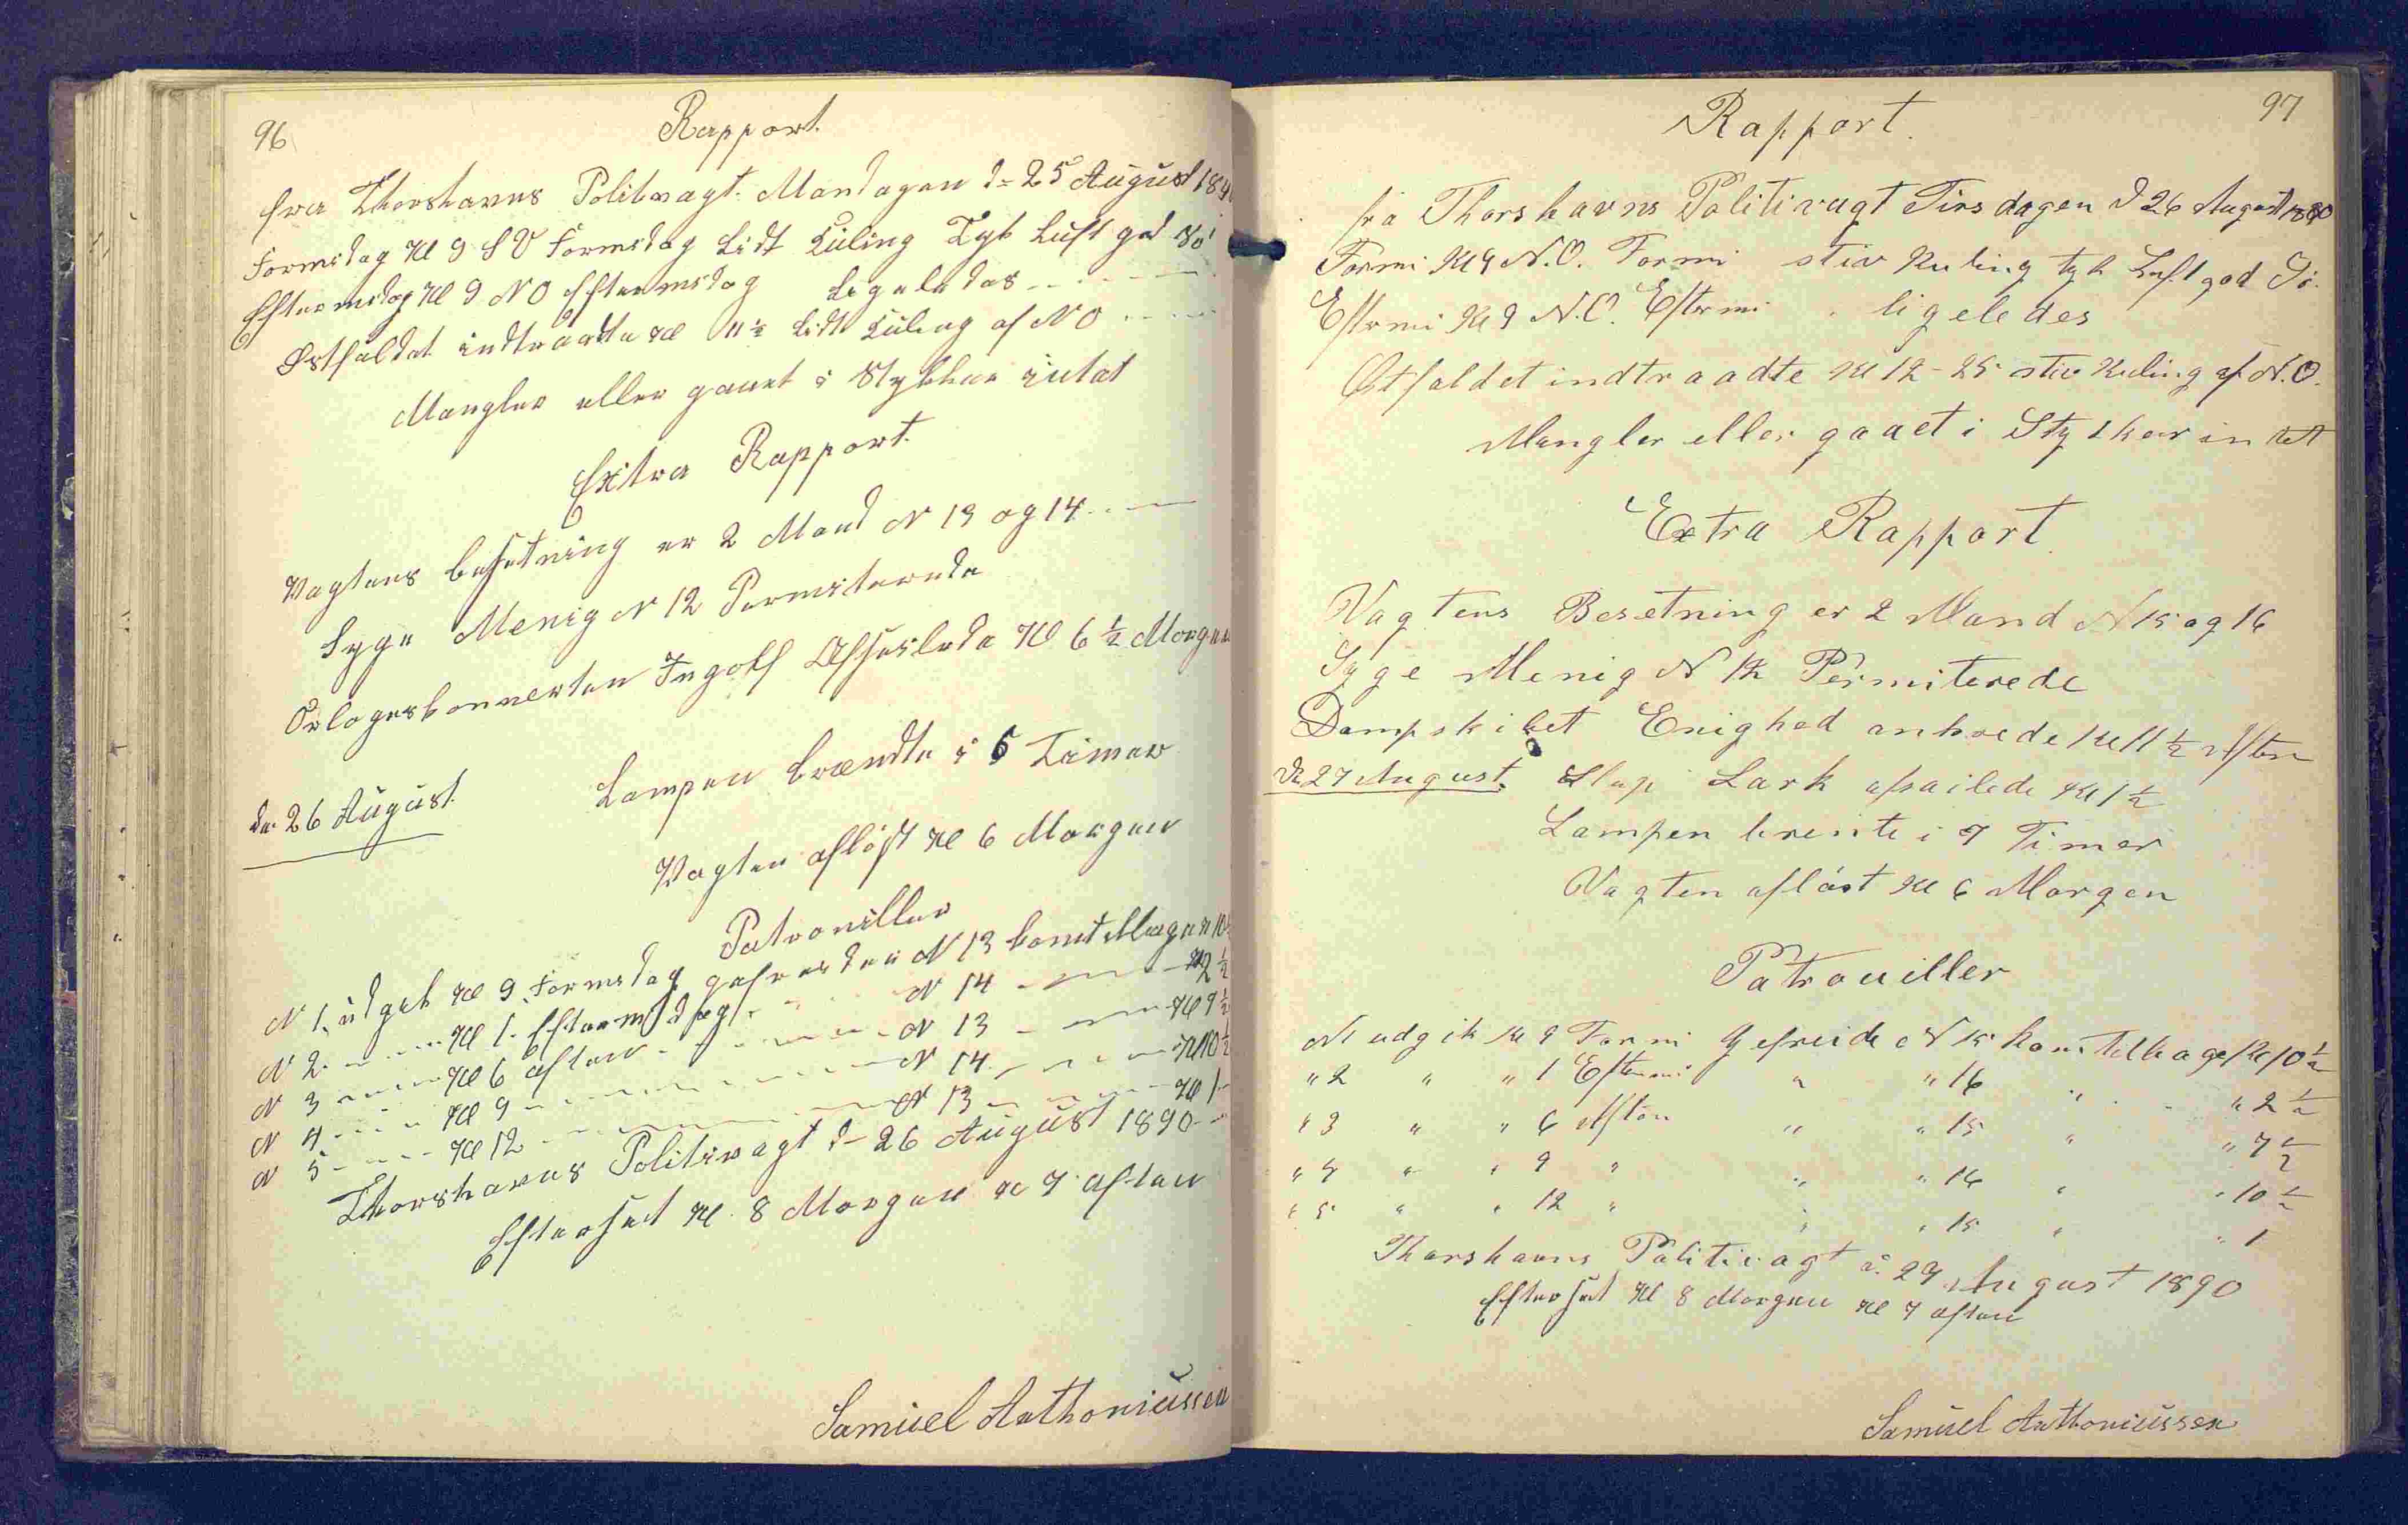 96
Rapport.
fra Thorshavns Politivagt. Mandagen d= 25 August 1890
Formidag Kl 9 S V Formidag Lidt Kuling Tyk Luft god Sö
Eftermidag Kl 9 N O Eftermidag Ligeledes
Østfaldet indtraadte Kl 11 ½ Lidt Kuling af N O
Mangler eller gaaet i Stykker intet
Extra Rapport.
Vagtens besetning er 2 Mand N 13 og 14
Syge Menig N 12 Permiterede
Orlogskonnerten Ingolf Afseilede Kl 6 ½ Morgen
Lampen brændte i 6 Timer
de 26 August.
Vagten aflöst Kl 6 Morgen
Patrouiller
N 1. udgik Kl 9 Formidag gefreider N 13 kom tilbage Kl 10
N 2. Kl 1. Eftermidag N 14 Kl 2 ½
N 3 Kl 6 aften N 13 Kl 7 ½
N 4 Kl 9 N 14 Kl 10 ½
N 5 Kl 12 N 13 Kl 1
Thorshavns Politivagt d= 26 August 1890
Efterset Kl 8 Morgen Kl 7 aften
Samuel Anthoniussen
97
Rapport.
fra Thorshavns Politivagt Tirsdagen d 26 August 1890
Formi Kl 9 N.O. Formi stiv Kuling tyk Luft god Sö.
Eftrmi Kl 9 N.O. Eftrmi " ligeledes
Østfaldet indtraadte Kl 12-25 stiv Kuling af N.O.
Mangler eller gaaet i Stykker intet
Extra Rapport.
Vagtens Besetning er 2 Mand N 15 og 16
Syge Menig N 12 Permiterede
Dampskibet Enighed ankrede Kl 11 ½ Aften
De 27 August. Slup Lark afsailede Kl 1 ½
Lampen brente i 7 Timer
Vagten aflöst Kl 6 Morgen
Patrouiller
N1 udgik Kl 9 Formi Gefreide N 15 kom tilbage Kl 10 ½
" 2 " " 1 Eftermi " " 16 " " 2 ½
" 3 " " 6 Aften " " 15 " " 7 ½
" 4 " " 9 " " " 16 " " 10 ½
" 5 " " 12 " " " 15 " " 1
Thorshavns Politivagt d. 27 August 1890
Efterset Kl 8 Morgen Kl 7 aften
Samuel Anthoniussen